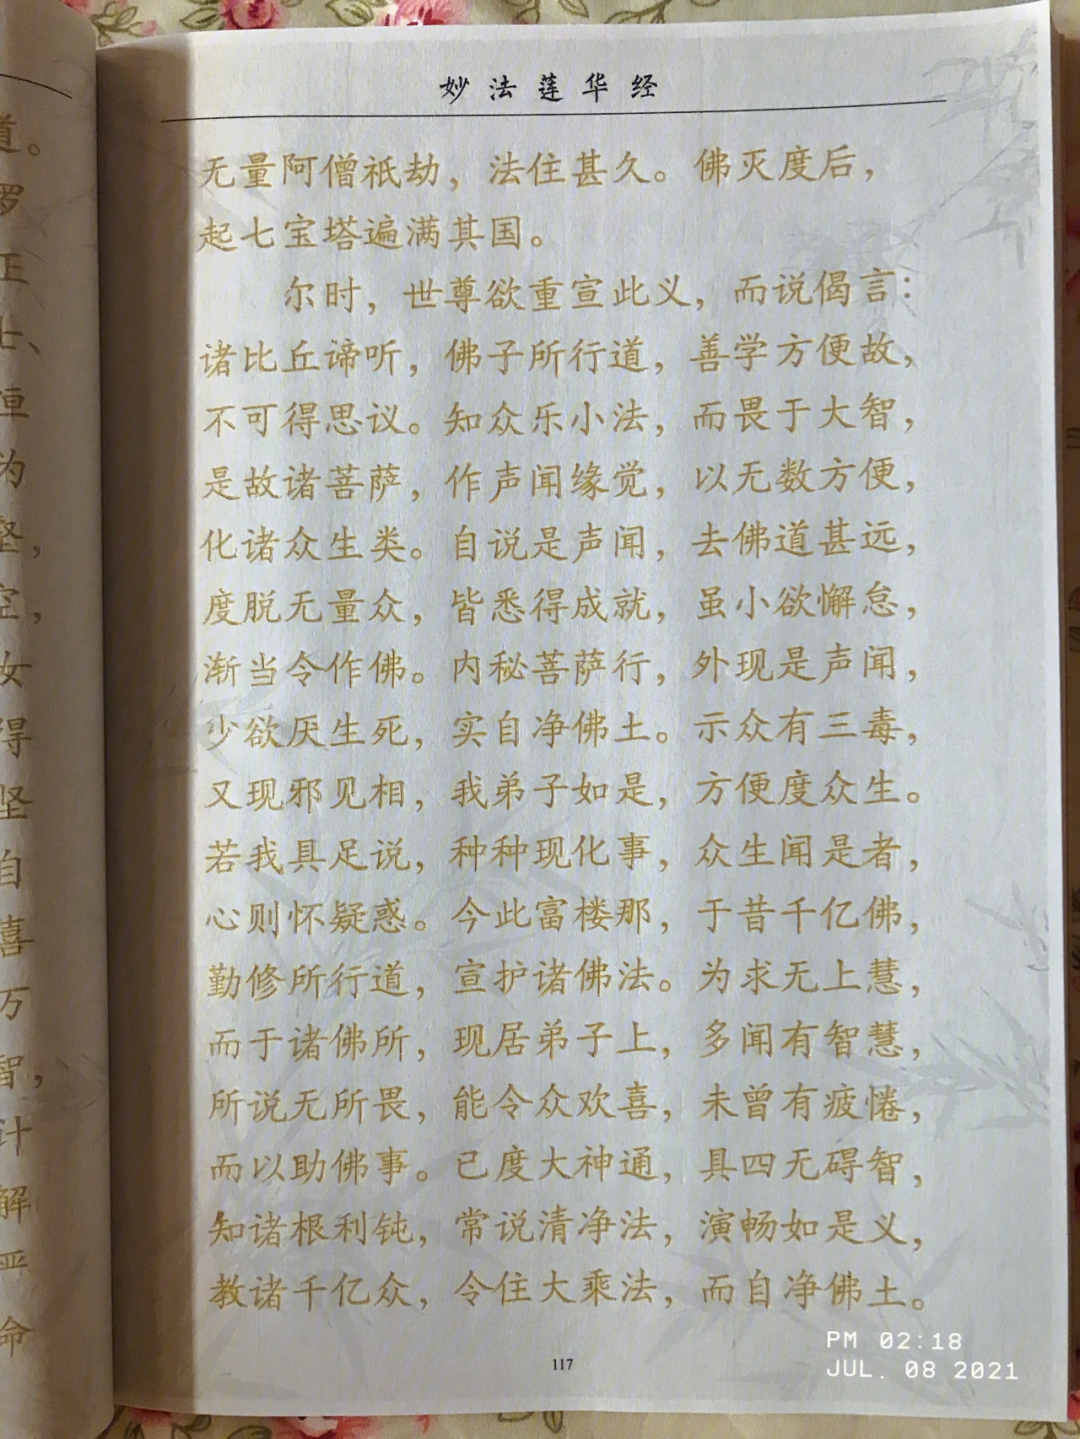 妙法莲华经
无量阿僧祇劫，法住甚久。佛灭度后，
起七宝塔遍满其国。
尔时，世尊欲重宣此义，而说偈言：
诸比丘谛听，佛子所行道，善学方便故，
不可得思议。知众乐小法，而畏于大智，
是故诸菩萨，作声闻缘觉，以无数方便，
化诸众生类。自说是声闻，去佛道甚远，
度脱无量众，皆悉得成就，虽小欲懈怠，
渐当令作佛。内秘菩萨行，外现是声闻，
少欲厌生死，实自净佛土。示众有三毒，
又现邪见相，我弟子如是，方便度众生。
若我具足说，种种现化事，众生闻是者，
心则怀疑惑。今此富楼那，于昔千亿佛，
勤修所行道，宣护诸佛法。为求无上慧，
而于诸佛所，现居弟子上，多闻有智慧，
所说无所畏，能令众欢喜，未曾有疲惓，
而以助佛事。已度大神通，具四无碍智，
知诸根利钝，常说清净法，演畅如是义，
教诸千亿众，令住大乘法，而自净佛土。
117
PM 02:18
JUL. 08 2021